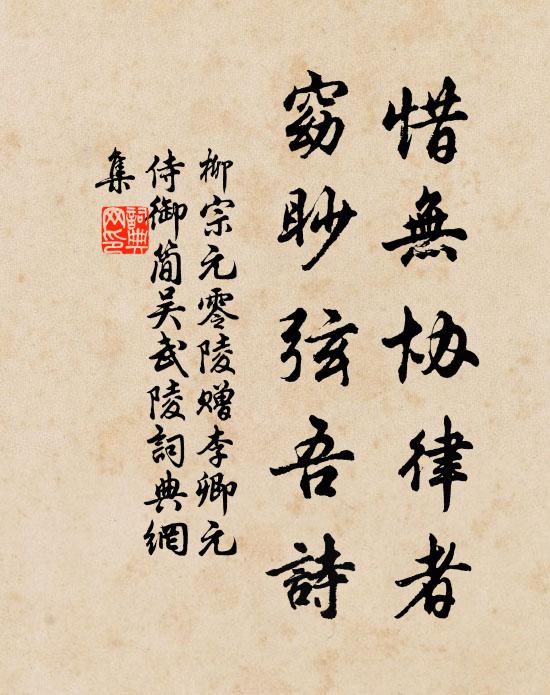 惜無协律者
窈眇弦吾詩
柳宗元零陵赠李卿元
侍御簡吴武陵詞典網
集
詞典
网印